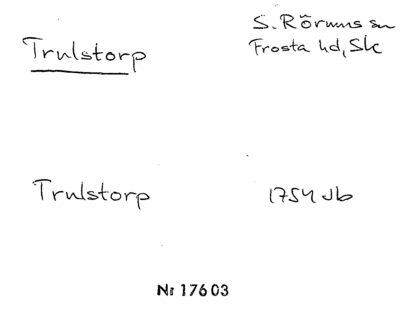 Trulstorp
S. Rörums sn
Frosta hd, Sk
Trulstorp
1754 Jb
Nr 17603